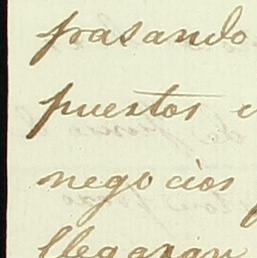 frasando
puestos
negocios
llegaran